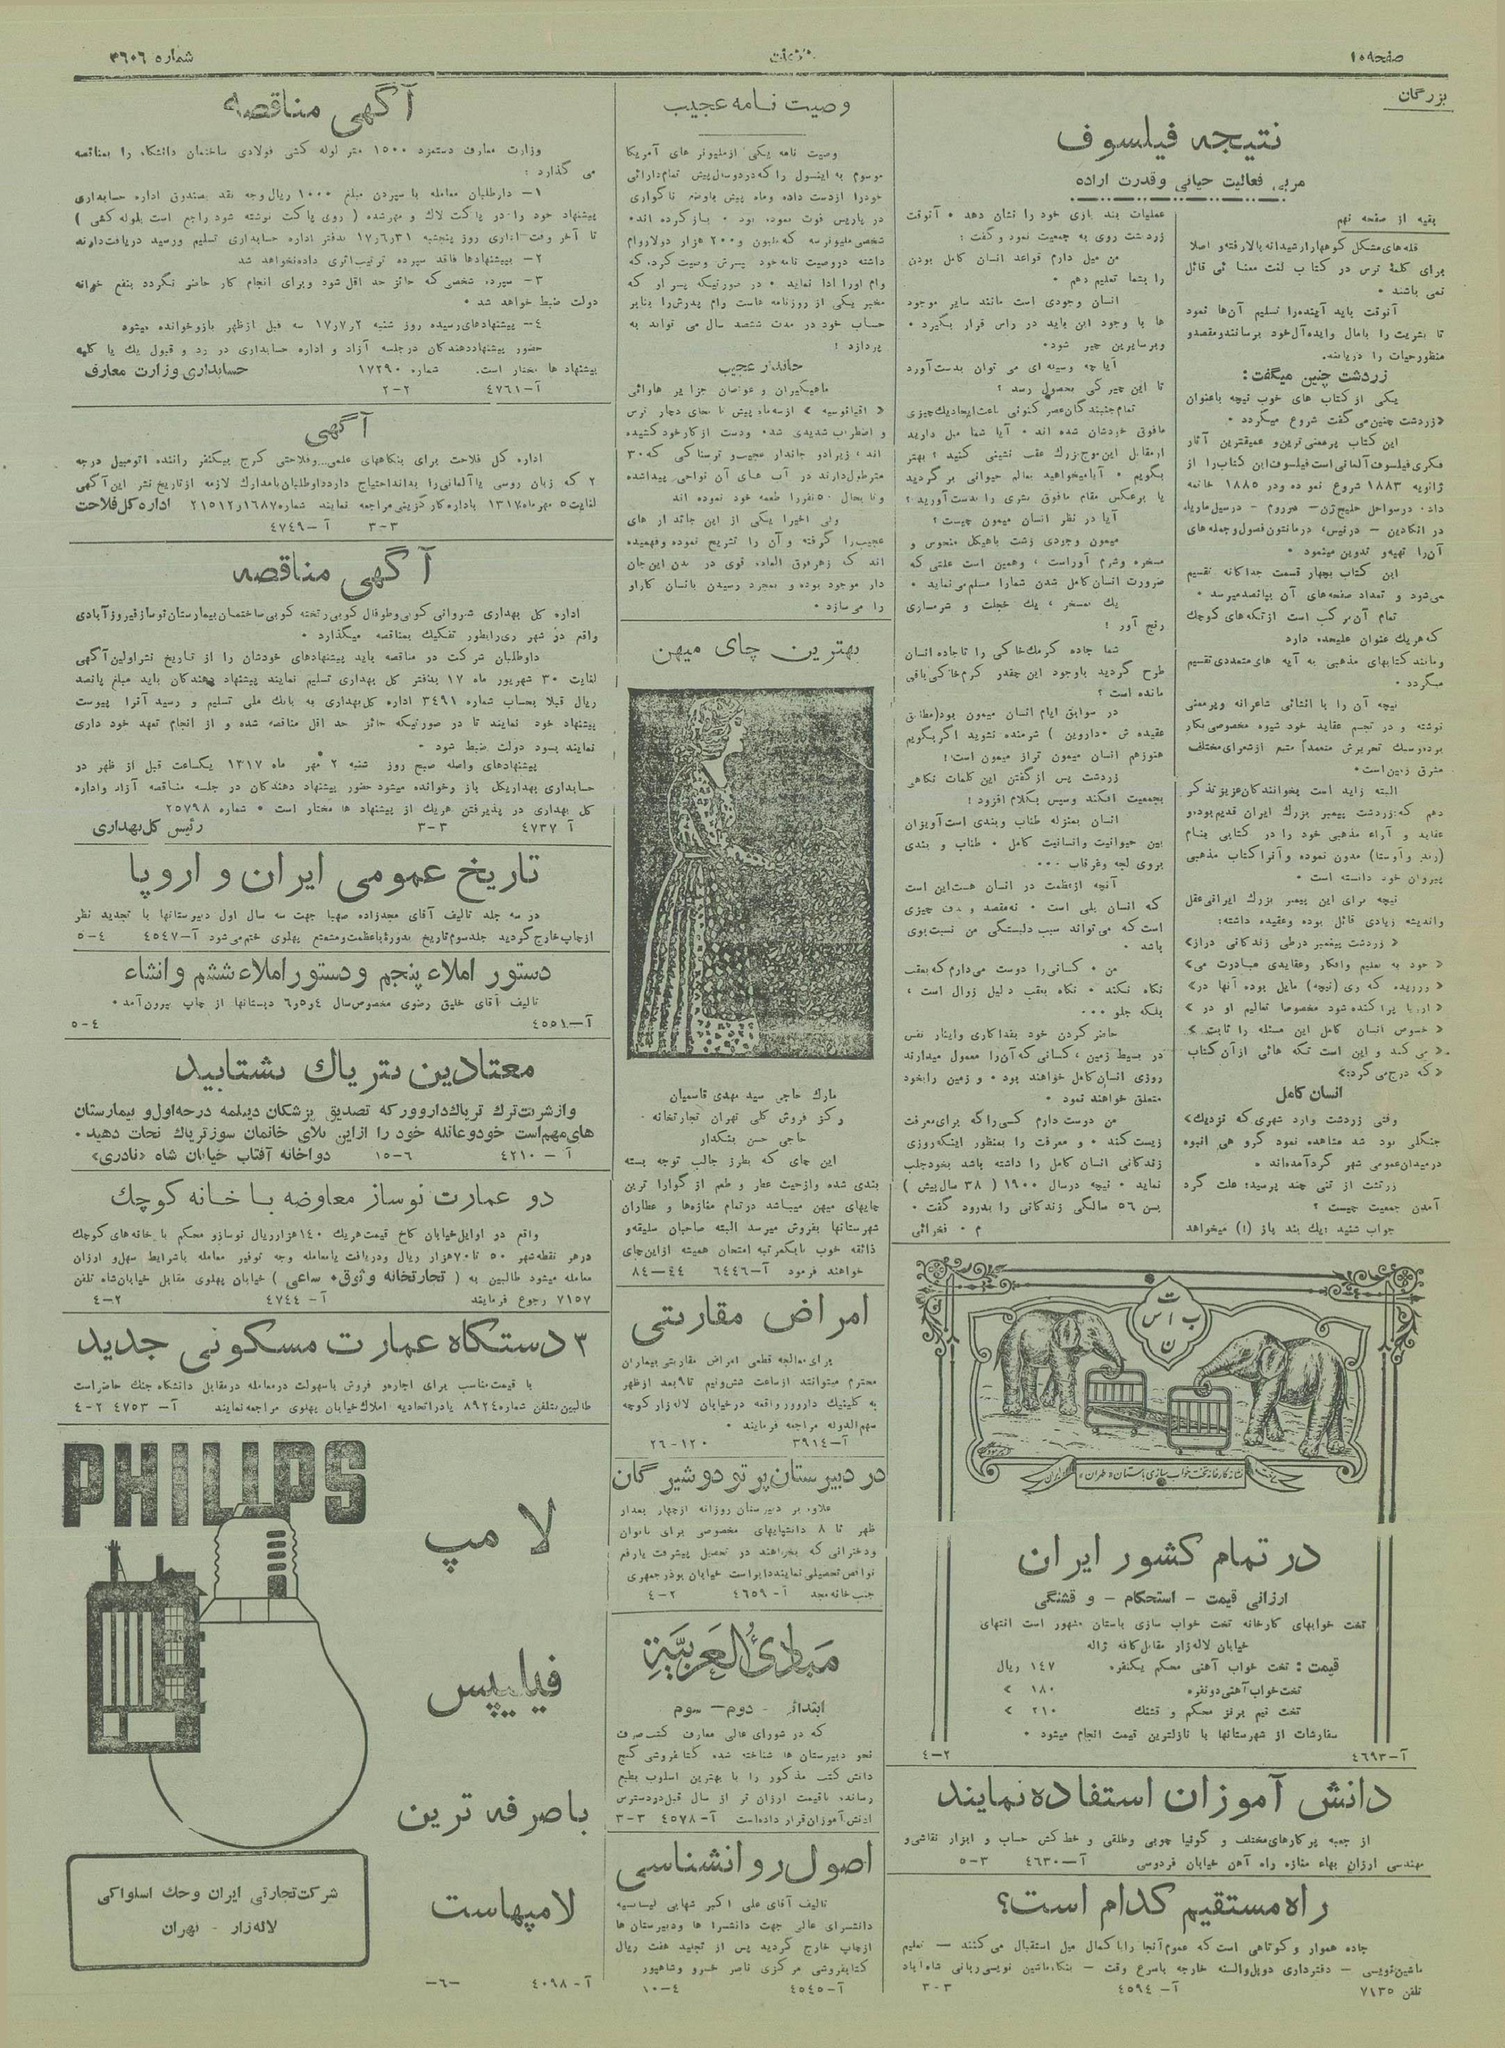 صفحه ۱۰
شماره ۳۶۰۶
بزرگان
نتیجه فیلسوف
مربی فعالیت حیاتی وقدرت اراده
بقیه از صفحه نهم
قله‌های مشکل کوهها را رشیدانه بالا رفته و اصلا
برای کلمهٔ ترس در کتاب لغت معنائی قائل
نمی باشند •
آنوقت باید آینده را تسلیم آن‌ها نمود
تا بشریت را بامال وایده‌آل خود برسانند و مقصد و
منظور حیات را دریافته.
زردشت چنین میگفت:
یکی از کتاب های خوب نیچه باعنوان
«زردشت چنین می گفت شروع میگردد •
این کتاب پرمعنی ترین و عمیقترین آثار
فکری فیلسوف آلمانی است فیلسوف این کتاب را از
ژانویه ۱۸۸۳ شروع نموده ودر ۱۸۸۵ خاتمه
آن را تهیه و تدوین مینمود •
این کتاب بچهار قسمت جداگانه تقسیم
می‌شود و تعداد صفحه‌های آن بپانصد میرسد •
تمام آن مرکب است از تکه‌های کوچک
که هر یک عنوان علیحده دارد
ومانند کتابهای مذهبی به آیه های متعددی تقسیم
میگردد •
نیچه آن را با انشائی شاعرانه وپرمعنی
نوشته و در تجسم عقاید خود شیوه مخصوصی بکار
مشرق زمین است •
البته زاید است بخوانندگان عزیز تذکر
دهم که زردشت پیمبر بزرگ ایران قدیم بوده و
عقاید و آراء مذهبی خود را در کتابی بنام
(زند و آوستا) مدون نموده و آنرا کتاب مذهبی
پیروان خود دانسته است •
نیچه برای این پیمبر بزرگ ایرانی عقل
واندیشه زیادی قائل بوده وعقیده داشته:
« زردشت پیغمبر درطی زندگانی دراز»
« خود به تعلیم وافکار وعقایدی مبادرت می»
« ورزیده که وی (نیچه) مایل بوده آنها در»
« اروپا پراکنده شود مخصوصا تعالیم او در »
« خصوص انسان کامل این مسئله را ثابت »
« می کند و این است تکه هائی از آن کتاب
« که درج می گردد:»
انسان کامل
وقتی زردشت وارد شهری که نزدیک»
جنگلی بود شد مشاهده نمود گروهی انبوه
در میدان عمومی شهر گرد آمده‌اند •
زردشت از تنی چند پرسید: علت گرد
آمدن جمعیت چیست ؟
جواب شنید: یک بند باز (!) میخواهد
عملیات بند بازی خود را نشان دهد • آنوقت
زردشت روی به جمعیت نمود وگفت :
من میل دارم قواعد انسان کامل بودن
را بشما تعلیم دهم •
انسان وجودی است مانند سایر موجود
ها با وجود این باید در راس قرار بگیرد •
وبر سایرین چیر شود •
آیا چه وسیله ای می توان بدست آورد
تا این چیرگی بحصول رسد ؟
تمام جنبندگان عصر کنونی باعث ایجاد یک چیزی
مافوق خودشان شده اند • آیا شما میل دارید
در مقابل این موج بزرگ عقب نشینی کنید ؟ بهتر
بگویم • آیا میخواهید بعالم حیوانی برگردید
یا برعکس مقام مافوق بشری را بدست آورید؟
آیا در نظر انسان میمون چیست؟
میمون وجودی زشت باهیکل منحوس و
مسخره وشرم آور است، وهمین است علتی که
ضرورت انسان کامل شدن شما را مسلم می‌نماید •
یک تمسخر ، یک خجلت و شرمساری
رنج آور !
شما جاده کرمک خاکی را تا جاده انسان
طرح کردید باوجود این چقدر کرم خاکی باقی
مانده است ؟
در سوابق ایام انسان میمون بود (مطابق
عقیده ش • داروین ) شرمنده نشوید اگر بگویم
هنوز هم انسان میمون تر از میمون است!
زردشت پس از گفتن این کلمات نگاهی
بجمعیت افکند وسپس بکلام افزود !
انسان بمنزله طناب وبندی است آویزان
بین حیوانیت وانسانیت کامل • طناب و بندی
بروی لجه وغرقاب •••
آنچه از عظمت در انسان هست این است
که انسان پلی است • نه مقصد و هدف چیزی
است که می تواند سبب دلبستگی من نسبت بوی
باشد •
من • کسانی را دوست می‌دارم که بعقب
نگاه نکند • نگاه بعقب دلیل زوال است ،
بلکه جلو •••
حاضر کردن خود بفداکاری وایثار نفس
در بسیط زمین ، کسانی که آن را معمول میدارند
روزی انسان کامل خواهند بود • و زمین را بخود
متعلق خواهند نمود •
من دوست دارم کسی را که برای معرفت
زیست کند • و معرفت را بمنظور اینکه روزی
زندگانی انسان کامل را داشته باشد بخود جلب
نماید • نیچه درسال ۱۹۰۰ ( ۳۸ سال پیش )
بسن ۵۶ سالگی زندگانی را بدرود گفت •
م • فخرائی
ب ا س ت ا ن
نشانه کارخانه تختخواب سازی باستان « طهران »
در تمام کشور ایران
ارزانی قیمت – استحکام – و قشنگی
تخت خوابهای کارخانه تخت خواب سازی باستان مشهور است انتهای
خیابان لاله زار مقابل کافه ژاله
قیمت: تخت خواب آهنی محکم یکنفره ۱۴۷ ریال
تخت خواب آهنی دونفره ۱۸۰ »
تخت نیم برنز محکم و قشنگ ۲۱۰ »
سفارشات از شهرستانها با نازلترین قیمت انجام میشود •
آ–۴۶۹۳ ۲–۴
دانش آموزان استفاده نمایند
از جعبه پرگارهای مختلف و گونیا چوبی وطلقی و خط کش حساب و ابزار نقاشی و
مهندسی ارزان بهاء مغازه راه آهن خیابان فردوسی آ–۴۶۳۰ ۳–۵
راه مستقیم کدام است؟
جاده هموار و کوتاهی است که عموم آنجا را با کمال میل استقبال می کنند — تعلیم
ماشین نویسی – دفترداری دوبل والسنه خارجه باسرع وقت – بنگاه ماشین نویسی ربانی شاه آباد
تلفن ۷۱۳۵ آ–۴۵۹۴ ۳–۳
وصیت نامه عجیب
وصیت نامه یکی از ملیونر های آمریکا
موسوم به اینسول را که در دوسال پیش تمام دارائی
خود را ازدست داده وماه پیش باوضع ناگواری
در پاریس فوت نموده بود • باز کرده اند •
داشته در وصیت نامه خود پسرش وصیت کرد، که
وام او را ادا نماید • در صورتیکه پسر او که
مخبر یکی از روزنامه هاست وام پدرش را بنابر
حساب خود در مدت ششصد سال می تواند به
پردازد !
جاندار عجیب
ماهیگیران و غواصان جزایر هاوائی
« اقیانوسیه » از سه ماه پیش تا بحال دچار ترس
و اضطراب شدیدی شده ودست از کار خود کشیده
اند ، زیرا دو جاندار عجیب و ترسناکی که ۳۰
متر طول دارند در آب های آن نواحی پیدا شده
وتا بحال ۵۰ نفر را طعمه خود نموده اند
ولی اخیرا یکی از این جاندار های
عجیب را گرفته و آن را تشریح نموده وفهمیده
اند که زهر فوق العاده قوی در بدن این جان
دار موجود بوده و بمجرد رسیدن بانسان کار او
را می سازد •
بهترین چای میهن
مارک حاجی سید مهدی قاسمیان
مرکز فروش کلی تهران تجارتخانه
حاجی حسن بنکدار
این چای که بطرز جالب توجه بسته
بندی شده وازحیث عطر و طعم از گوارا ترین
چایهای میهن میباشد درتمام مغازه‌ها و عطاران
شهرستانها بفروش میرسد البته صاحبان سلیقه و
ذائقه خوب با یکمرتبه امتحان همیشه از این چای
خواهند فرمود آ–۶۴۴۶ ۴۴–۸۴
امراض مقاربتی
برای معالجه قطعی امراض مقاربتی بیماران
محترم میتوانند از ساعت شش ونیم تا ۹ بعد از ظهر
به کلینیک داروور واقعه درخیابان لاله زار کوچه
سهم الدوله مراجعه فرمایند •
آ–۳۹۱۴ ۱۲۰–۲۶
در دبیرستان پرتو دوشیزگان
علاوه بر دبیرستان روزانه از چهار بعد از
ظهر تا ۸ دانشپایهای مخصوصی برای بانوان
ودخترانی که بخواهند در تحصیل پیشرفت یا رفع
نواقص تحصیلی نمایند دایر است خیابان بوذرجمهری
جنب خانه مجد آ–۴۶۵۹ ۲–۴
مَبادِئُ العَرَبیَّةِ
ابتدائی - دوم – سوم
که در شورای عالی معارف کتب صرف
نحو دبیرستان ها شناخته شده کتابفروشی گنج
دانش کتب مذکور را با بهترین اسلوب بطبع
رسانده باقیمت ارزان تر از سال قبل در دسترس
دانش آموزان قرار داده است آ–۴۵۷۸ ۳–۳
اصول روانشناسی
تالیف آقای علی اکبر شهابی لیسانسیه
دانشسرای عالی جهت دانشسرا ها ودبیرستان ها
ازچاپ خارج گردید پس از تجلید هفت ریال
کتابفروشی مرکزی ناصر خسرو وشاهپور
آ–۴۵۴۵ ۴–۱۰
آگهی مناقصه
وزارت معارف دستمزد ۱۵۰۰ متر لوله کشی فولادی ساختمان دانشگاه را بمناقصه
می گذارد :
۱– داوطلبان معامله با سپردن مبلغ ۱۰۰۰ ریال وجه نقد بصندوق اداره حسابداری
پیشنهاد خود را در پاکت لاک و مهر شده ( روی پاکت نوشته شود راجع است بلوله کشی )
تا آخر وقت اداری روز پنجشنبه ۱۷٫۶٫۳۱ بدفتر اداره حسابداری تسلیم ورسید دریافت دارند
۲– بپیشنهادها فاقد سپرده ترتیب اثری داده نخواهد شد
۳– سپرده شخصی که حائز حد اقل شود وبرای انجام کار حاضر نگردد بنفع خزانه
دولت ضبط خواهد شد •
۴– پیشنهادهای رسیده روز شنبه ۱۷٫۷٫۲ سه قبل از ظهر باز وخوانده میشود
حضور پیشنهاد دهندگان درجلسه آزاد و اداره حسابداری در رد و قبول یک یا کلیه
پیشنهاد ها مختار است. شماره ۱۷۲۹۰ حسابداری وزارت معارف
آ–۴۷۶۱ ۲–۲
آگهی
اداره کل فلاحت برای بنگاههای علمی وفلاحتی کرج بیکنفر راننده اتومبیل درجه
۲ که زبان روسی یا آلمانی را بداند احتیاج دارد داوطلبان با مدارک لازمه از تاریخ نشر این آگهی
لغایت ۵ مهر ماه ۱۳۱۷ باداره کارگزینی مراجعه نمایند شماره ۲۱۵۱۲٫۱۶۸۷ اداره کل فلاحت
آ–۴۷۴۹ ۳–۳
آگهی مناقصه
اداره کل بهداری شیروانی کوبی وطوفال کوبی وتخته کوبی ساختمان بیمارستان نوساز فیروزآبادی
واقع در شهر ری رابطور تفکیک بمناقصه میگذارد •
داوطلبان شرکت در مناقصه باید پیشنهادهای خودشان را از تاریخ نشر اولین آگهی
لغایت ۳۰ شهریور ماه ۱۷ بدفتر کل بهداری تسلیم نمایند پیشنهاد دهندگان باید مبلغ پانصد
ریال قبلا بحساب شماره ۳۴۹۱ اداره کل بهداری به بانک ملی تسلیم و رسید آنرا پیوست
پیشنهاد خود نمایند تا در صورتیکه حائز حد اقل مناقصه شده و از انجام تعهد خود داری
نمایند بسود دولت ضبط شود •
پیشنهادهای واصله صبح روز شنبه ۲ مهر ماه ۱۳۱۷ یکساعت قبل از ظهر در
حسابداری بهداری کل باز وخوانده میشود حضور پیشنهاد دهندگان در جلسه مناقصه آزاد واداره
کل بهداری در پذیرفتن هر یک از پیشنهاد ها مختار است • شماره ۲۵۷۹۸
آ ۴۷۳۷ ۳–۳ رئیس کل بهداری
تاریخ عمومی ایران و اروپا
در سه جلد تالیف آقای مجدزاده صهبا جهت سه سال اول دبیرستانها با تجدید نظر
ازچاپ خارج گردید جلد سوم تاریخ بدورهٔ باعظمت و مشعشع پهلوی ختم می شود آ–۴۵۴۷ ۴–۵
دستور املاء پنجم ودستور املاء ششم وانشاء
تالیف آقای خلیق رضوی مخصوص سال ۴و۵و۶ دبستانها از چاپ بیرون آمد •
آ–۴۵۵۱ ۴–۵
معتادین بتریاک بشتابید
واز شربت ترک تریاک داروور که تصدیق پزشکان دیپلمه درجه اول و بیمارستان
های مهم است خود وعائله خود را از این بلای خانمان سوز تریاک نجات دهید •
آ – ۴۲۱۰ ۶–۱۵ دواخانه آفتاب خیابان شاه «نادری»
دو عمارت نوساز معاوضه با خانه کوچک
واقع در اوایل خیابان کاخ قیمت هریک ۱۴۰ هزار ریال نوساز و محکم با خانه‌های کوچک
درهر نقطه شهر ۵۰ تا ۷۰ هزار ریال ودریافت یا معامله وجه توفیر معامله باشرایط سهل و ارزان
معامله میشود طالبین به ( تجارتخانه وثوق • ساعی ) خیابان پهلوی مقابل خیابان شاه تلفن
۷۱۵۷ رجوع فرمایند آ–۴۷۴۴ ۲–۴
۳ دستگاه عمارت مسکونی جدید
با قیمت مناسب برای اجاره و فروش باسهولت در معامله در مقابل دانشگاه جنگ حاضر است
طالبین بتلفن شماره ۸۹۲۴ یا دراتحادیه املاک خیابان پهلوی مراجعه نمایند آ–۴۷۵۳ ۲–۴
PHILIPS
لامپ
فیلیپس
باصرفه ترین
لامپهاست
شرکت تجارتی ایران وچک اسلواکی
لاله زار - تهران
آ–۴۰۹۸ –۶–